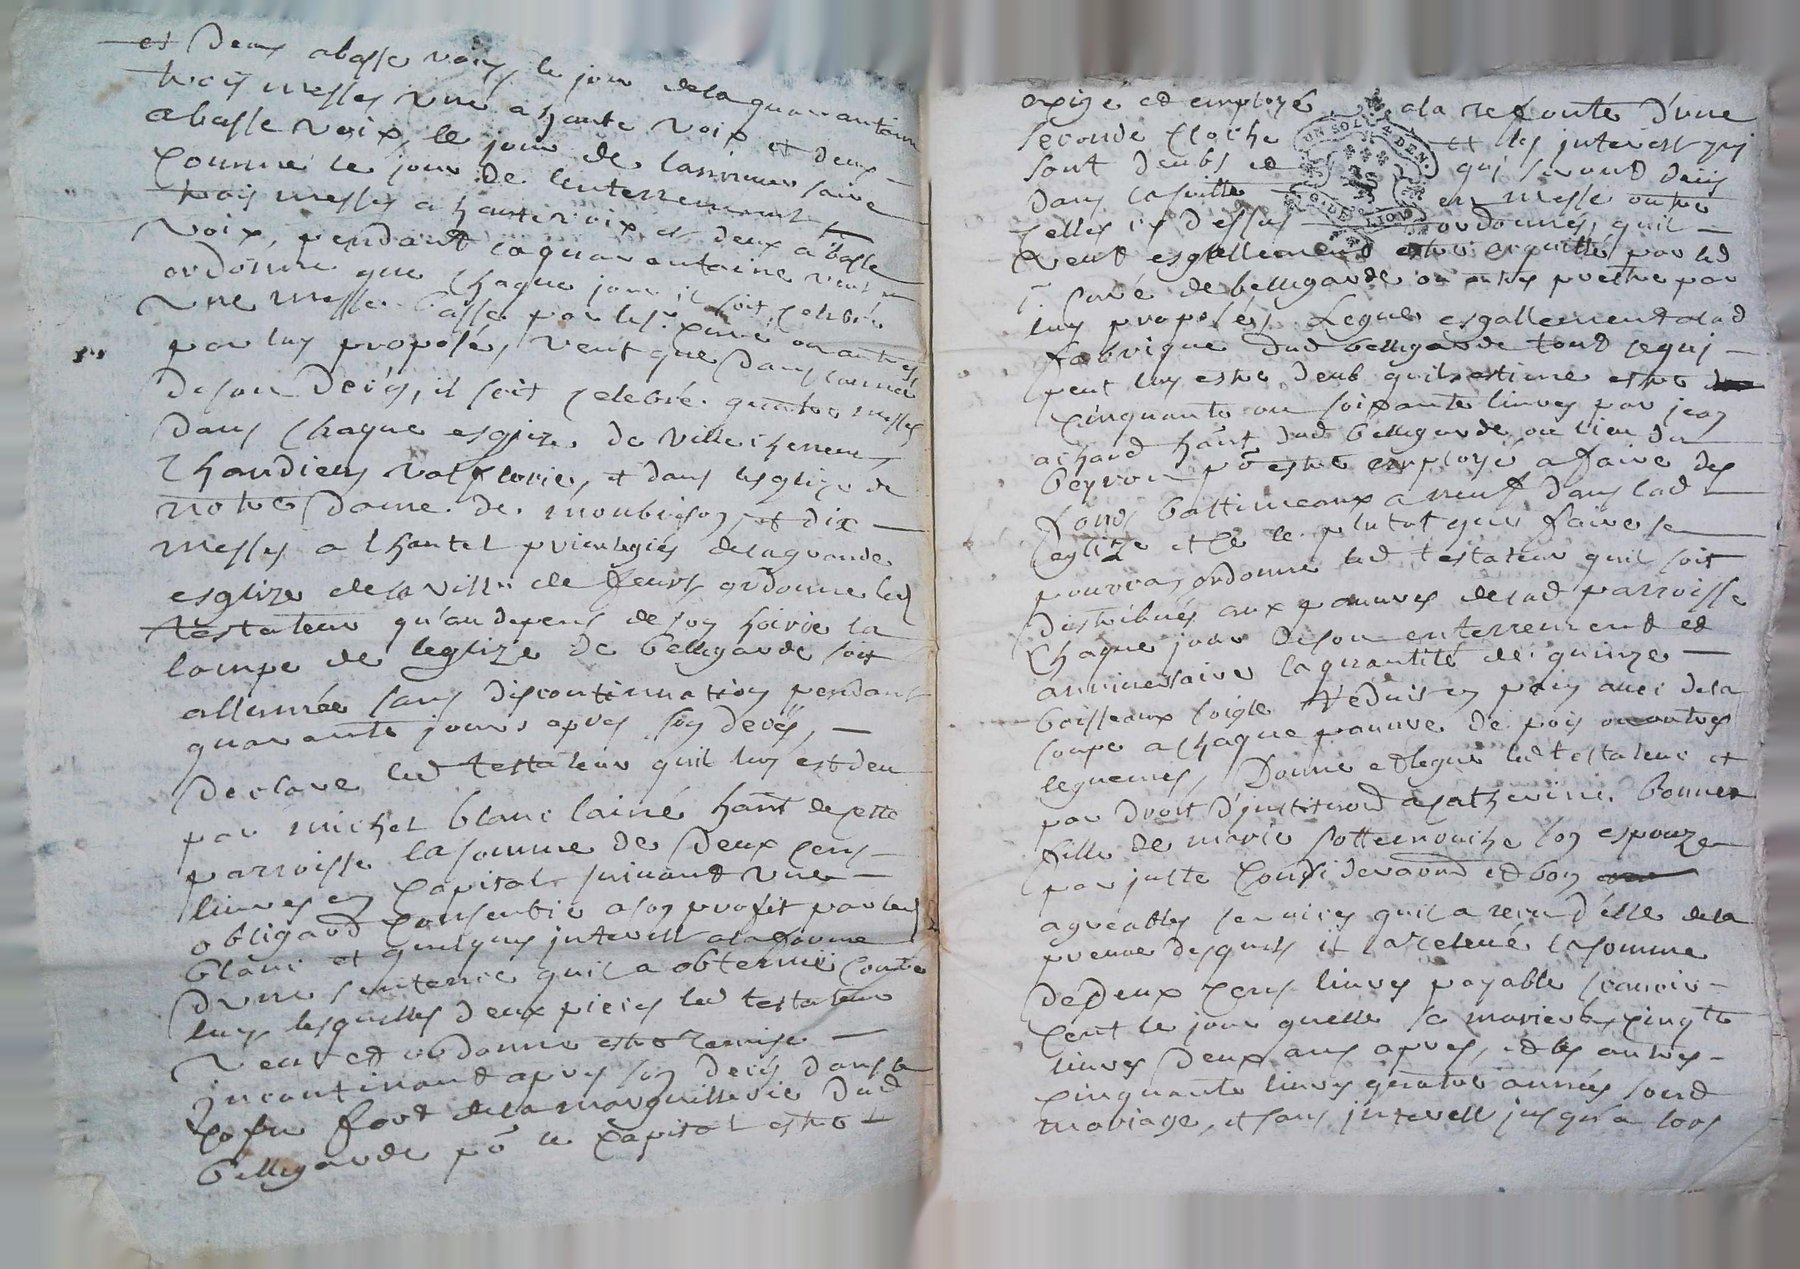 et deux abasse voix, le jour dela quarantaine
trois messes une a haute voix et deux
abasse voix, le jour de laniversaire
comme le jour de lenterrement,
trois messes a haute voix et deux a basse
voix, pendant la quarantaine veut,
ordonne que chaque jour il soit celebré
une messe basse par led. s. curé ou autres
par luy proposés, veut que dans lannée
de son decés, il soit celebré quatre messes
dans chaque esglize de villecheneve,
Chandieu valfleurie, et dans lesglize de
notre Dame de montbrison, et dix
messes a lhautel privilegiés dela grande
esglize dela ville de feurs ordonne led
testateur qu'au depens de son hoirie la
lampe de leglize de bellegarde soit
allumée sans discontinuation pendant
quarante jours apres son decés,
declare led testateur quil luy est deu
par michel blanc lainé hant de cette
parroisse la somme de deux cens
livres en capital suivant une
obligaõn consentie a son profit par led
blanc et quelques interest a la forme
dune sentence quil a obtenue contre
luy lesquelles deux pieces led testateur
veut et ordonne estre remise
incontinant apres son decés dans le
cofre fort dela marguillerie dud
bellegarde põ le capital estre
exigé et employé a la refonte d'une
seconde cloche et les interest qui
sont deubs et qui seront deus
dans la suitte en messe outre
celles cy dessus ordonnés, quil
veut esgallement estre acquitté par led
s. curé de bellegarde ou autres prestre par
luy proposés, Legue esgallement alad
fabrique dud bellegarde tout ce qui
peut luy estre deub quil estime estre
cinquante ou soixante livres par jean
achard hant dud bellegarde au lieu du
beyron põ estre employé a faire des
fonds battimeaux a neuf dans lad
eglize et ce le plutot que faire se
pourra, ordonne led testateur quil soit
distribués aux pauvres de lad parroisse
chaque jour de son enterrement et
anniversaire la quantité de quinze
boisseaux soigle réduit en pain avec de la
soupe a chaque pauvre de pois ou autres
legumes, Donne et legue led testateur et
par droit d'institution a catherine bonnet
fille de marie sottemouche son espouze
par juste consideraõn et bon
agreables services quil a receu d'elle dela
preuve desquels il la relevé la somme
de deux cens livres payable scavoir
cent le jour quelle se mariera, cinqte
livres deux ans apres, et les autres
cinquante livres quatre années sond
mariage, et sans interest jusqu'a lors
UN SOL 4 DEN.
G. DE LION